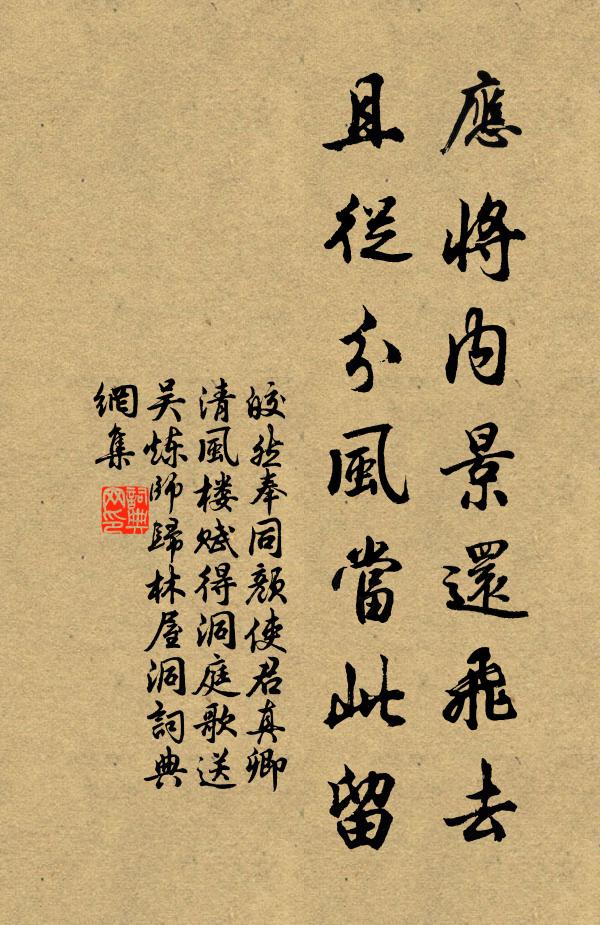 應將内景還飛去
且從分風當此留
皎然奉同顏使君真卿
清風楼赋得洞庭歌送
吴炼師歸林屋洞詞典
網集
詞典
网印